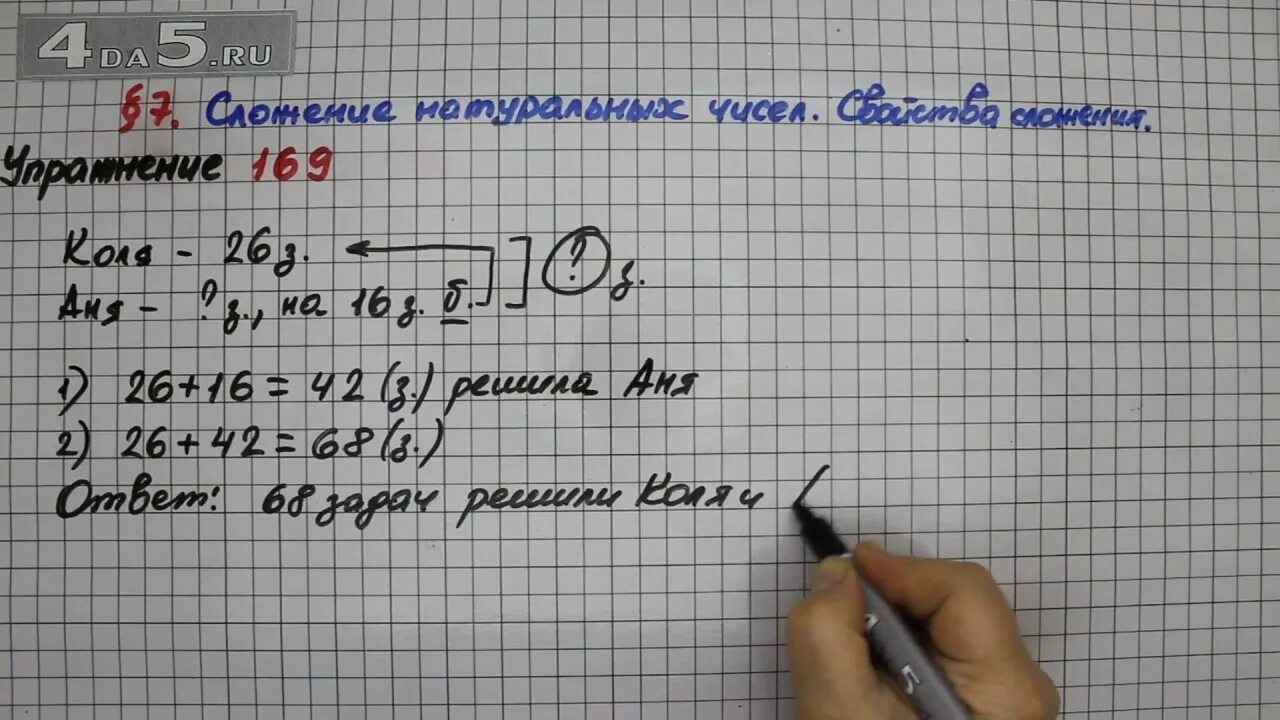 4DA5.RU
§7. Сложение натуральных чисел. Свойства сложения.
Упражнение 169
Коля - 26 з.
Аня - ? з., на 16 з. б.
? з.
1) 26+16 = 42 (з.) решила Аня
2) 26 + 42 = 68 (з.)
Ответ: 68 задач решили Коля и
5